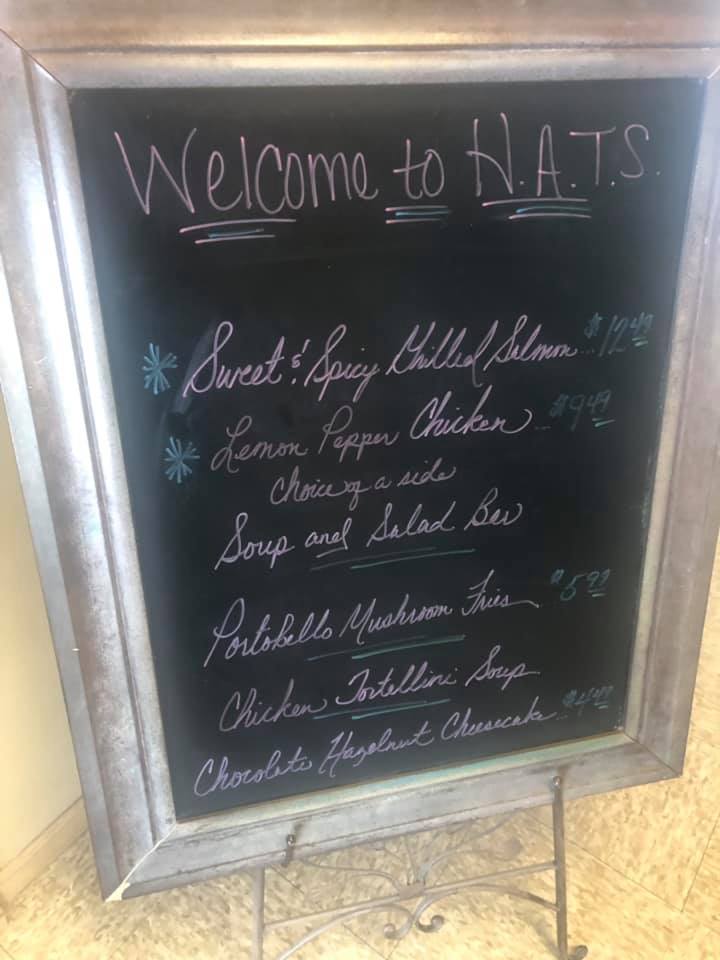 Welcome to H.A.T.S.
* Sweet & Spicy Grilled Salmon...$12.49
* Lemon Pepper Chicken...$9.49
choice of a side
Soup and Salad Bar
Portobello Mushroom Fries...$5.99
Chicken Tortellini Soup
Chocolate Hazelnut Cheesecake...$4.49